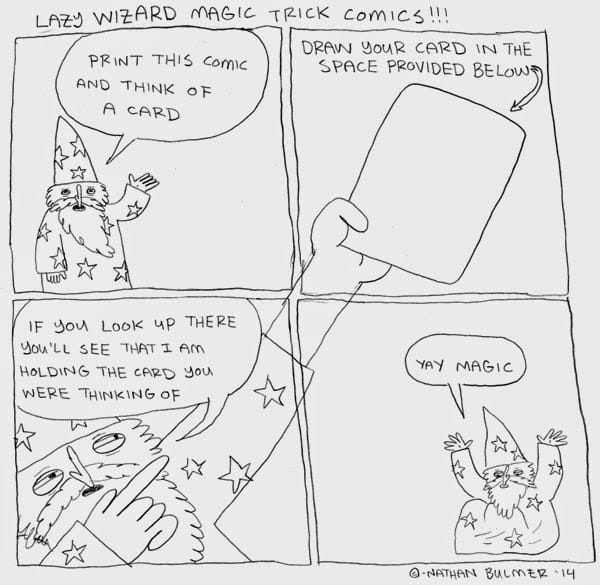 LAZY WIZARD MAGIC TRICK COMICS!!!
PRINT THIS COMIC
AND THINK OF
A CARD
DRAW YOUR CARD IN THE
SPACE PROVIDED BELOW
IF YOU LOOK UP THERE
YOU'LL SEE THAT I AM
HOLDING THE CARD YOU
WERE THINKING OF
YAY MAGIC
©-NATHAN BULMER '14